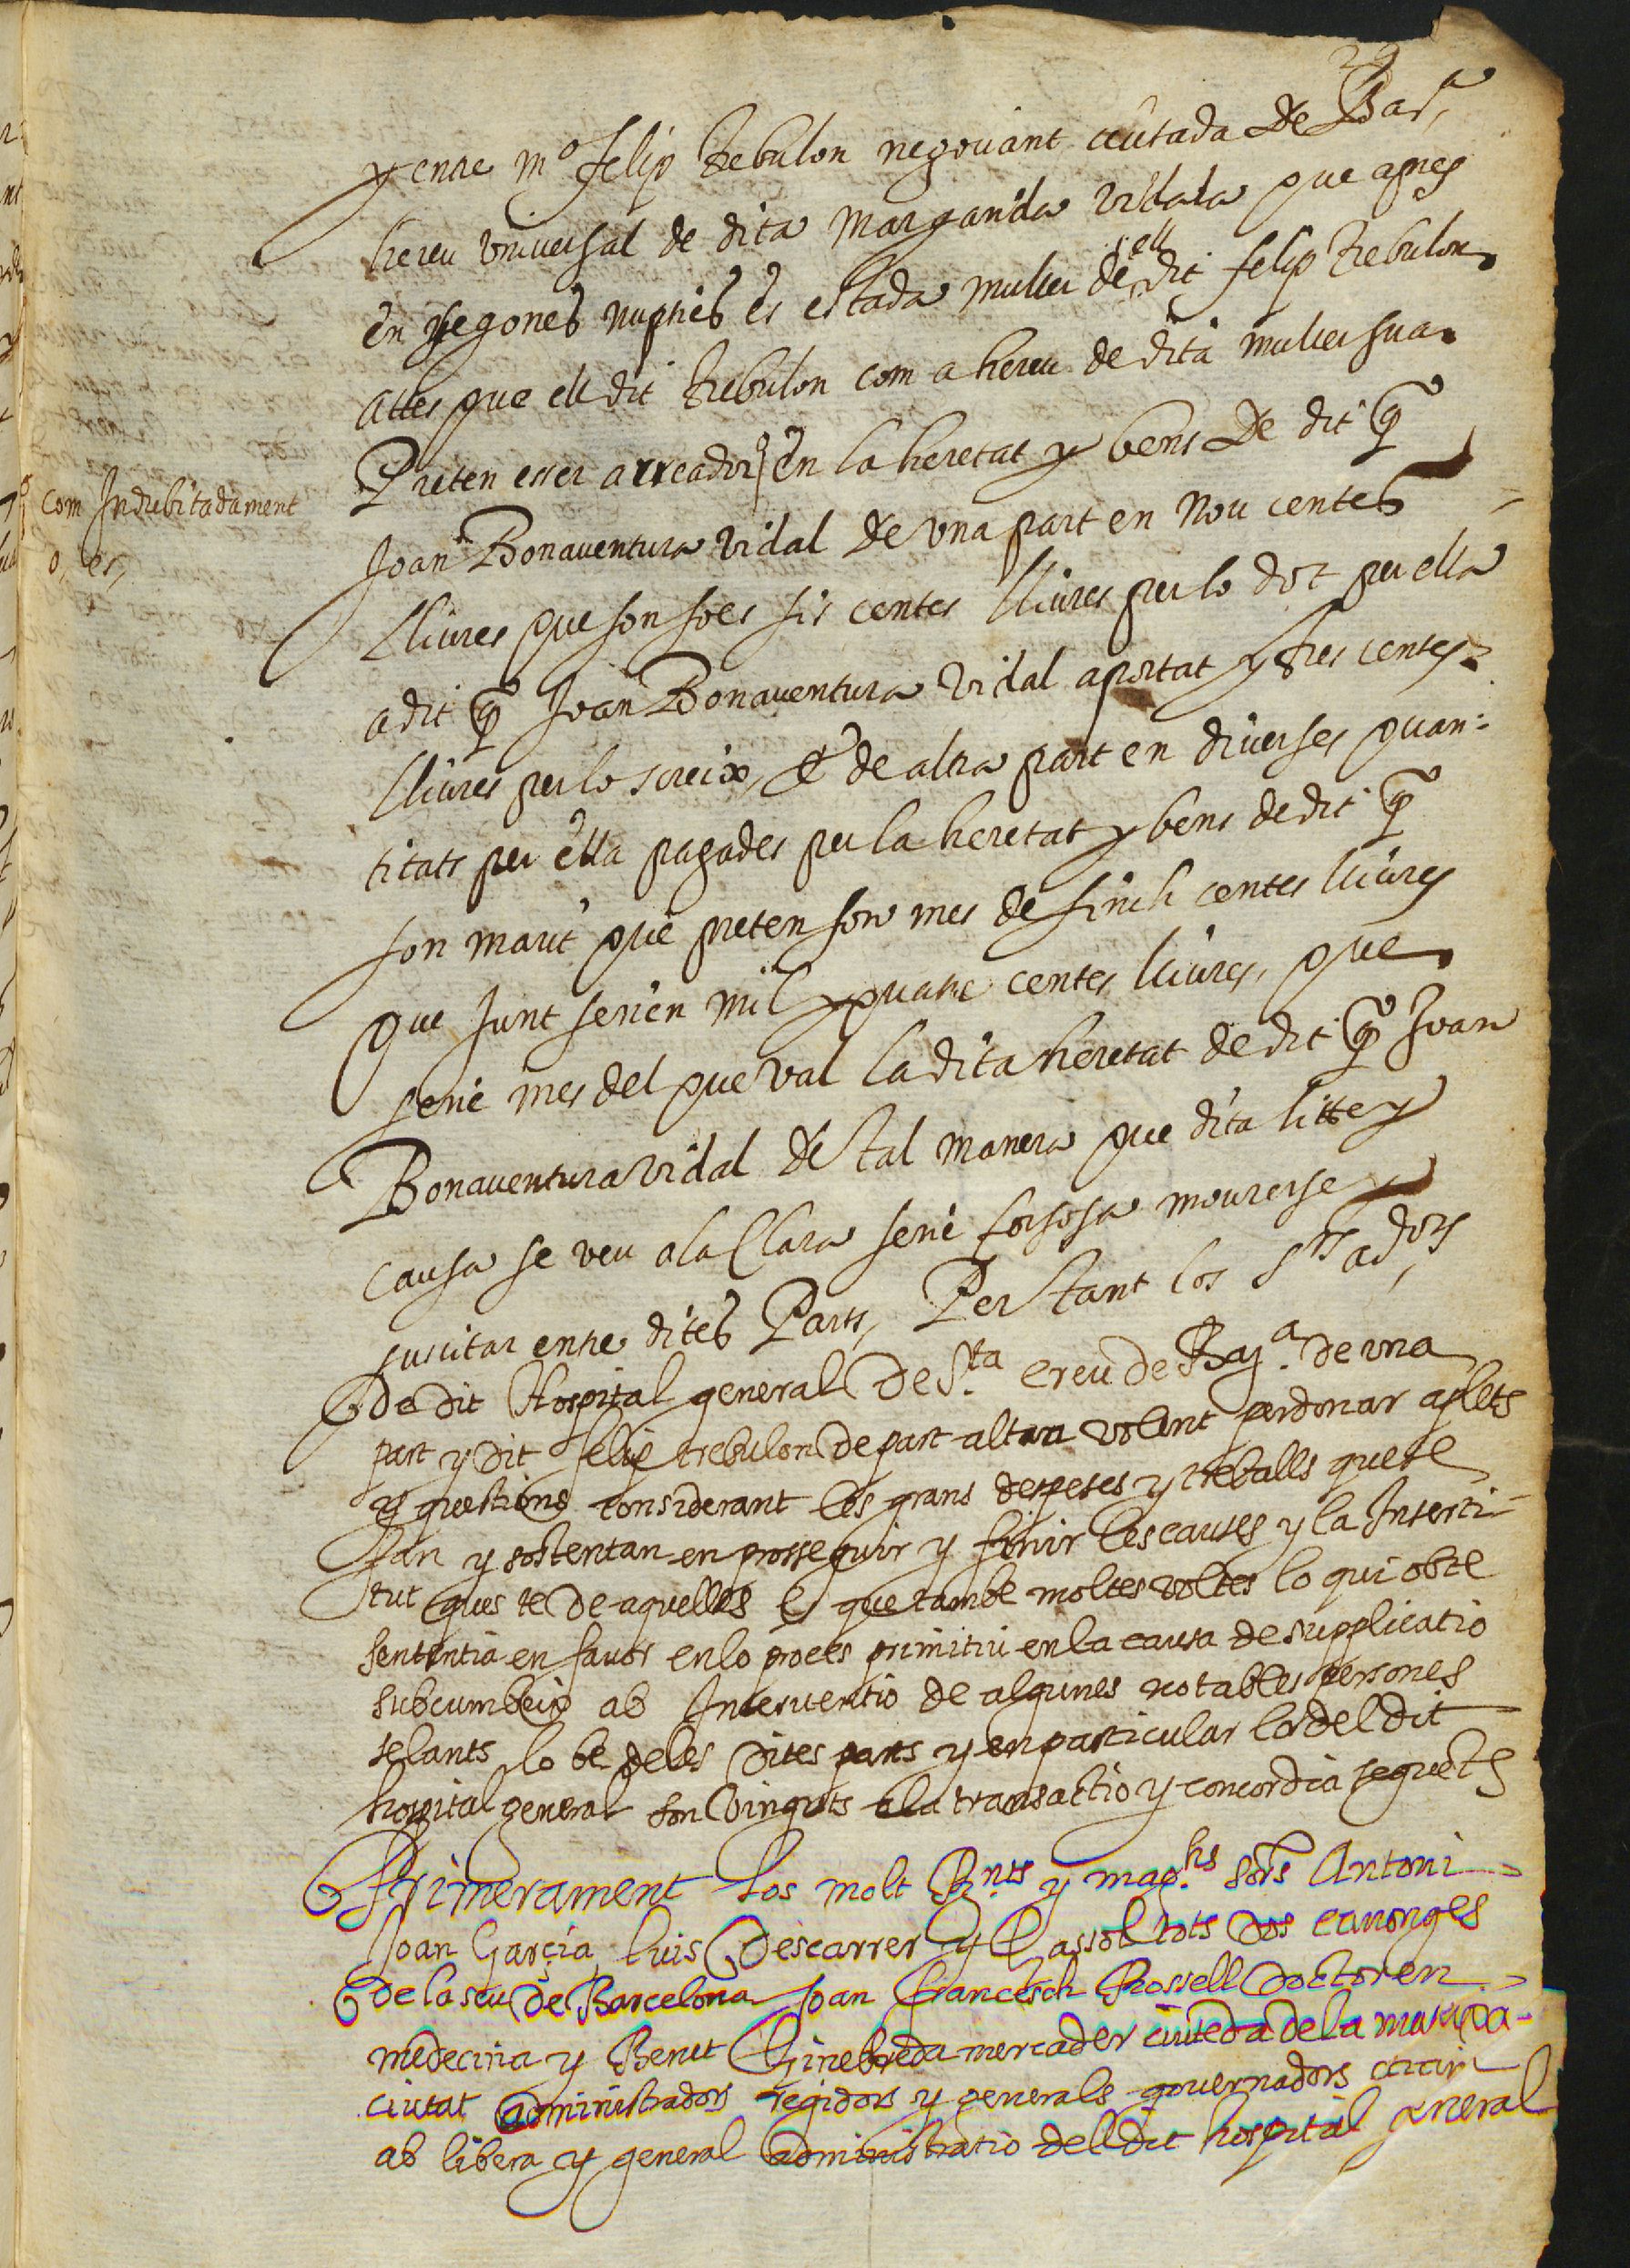 29
y entre mº felip trebulon negociant ciutada de Barª
hereu universal de dita Margarida vidala que apres
en segones nupties es estada muller de ell dit felip trebulon
attes que ell dit trebulon com a hereu de dita muller sua
Preten esser acreador en la heretat y bens de dit q̃
com Indubitadament
o, es,
Joan Bonaventura vidal de una part en nou centes
lliures que son soes sis centes lliures per lo dot per ella
a dit q̃ Joan Bonaventura vidal aportat y tres centes
lliures per lo screix, & de altra part en diverses quan-
titats per ella pagades per la heretat y bens de dit q̃
son marit que preten son mes de sinch centes lliures
que junt serien mil y quatre centes lliures, que
serie mes del que val la dita heretat de dit q̃ Joan
Bonaventura vidal de tal manera que dita litte y
causa se veu a la Clara serie forsosa mourerse y
suscitar entre dites Parts, Per tant los Sʳˢ adors
de dit Hospital general de Sᵗᵃ creu de Barª de una
part y dit felip trebulon de part altra volent perdonar a plets
y questions considerant les grans despeses y treballs que se
fan y sostentan en prosseguir y finir les causes y la Inserti-
tut ques te de aquelles e que tambe moltes voltes lo qui obte
sententia en favor en lo proces primitiu en la causa de supplicatio
subcumbeix ab Interventio de algunes notables persones
selants lo be de les dites parts y en particular lo del dit
hospital general son vinguts a la transactio y concordia seguents
Primerament los molt Rⁿᵗˢ y magᶜʰˢ sors Antoni
Joan Garcia, luis Descarrer y Çassol tots dos canonges
de la seu de Barcelona Joan francesch Rossell doctor en
medecina y Benet Ginebreda mercader ciuteda de la matixa
ciutat administradors regidors y generals governadors
ab libera y general administratio dell dit hospital general